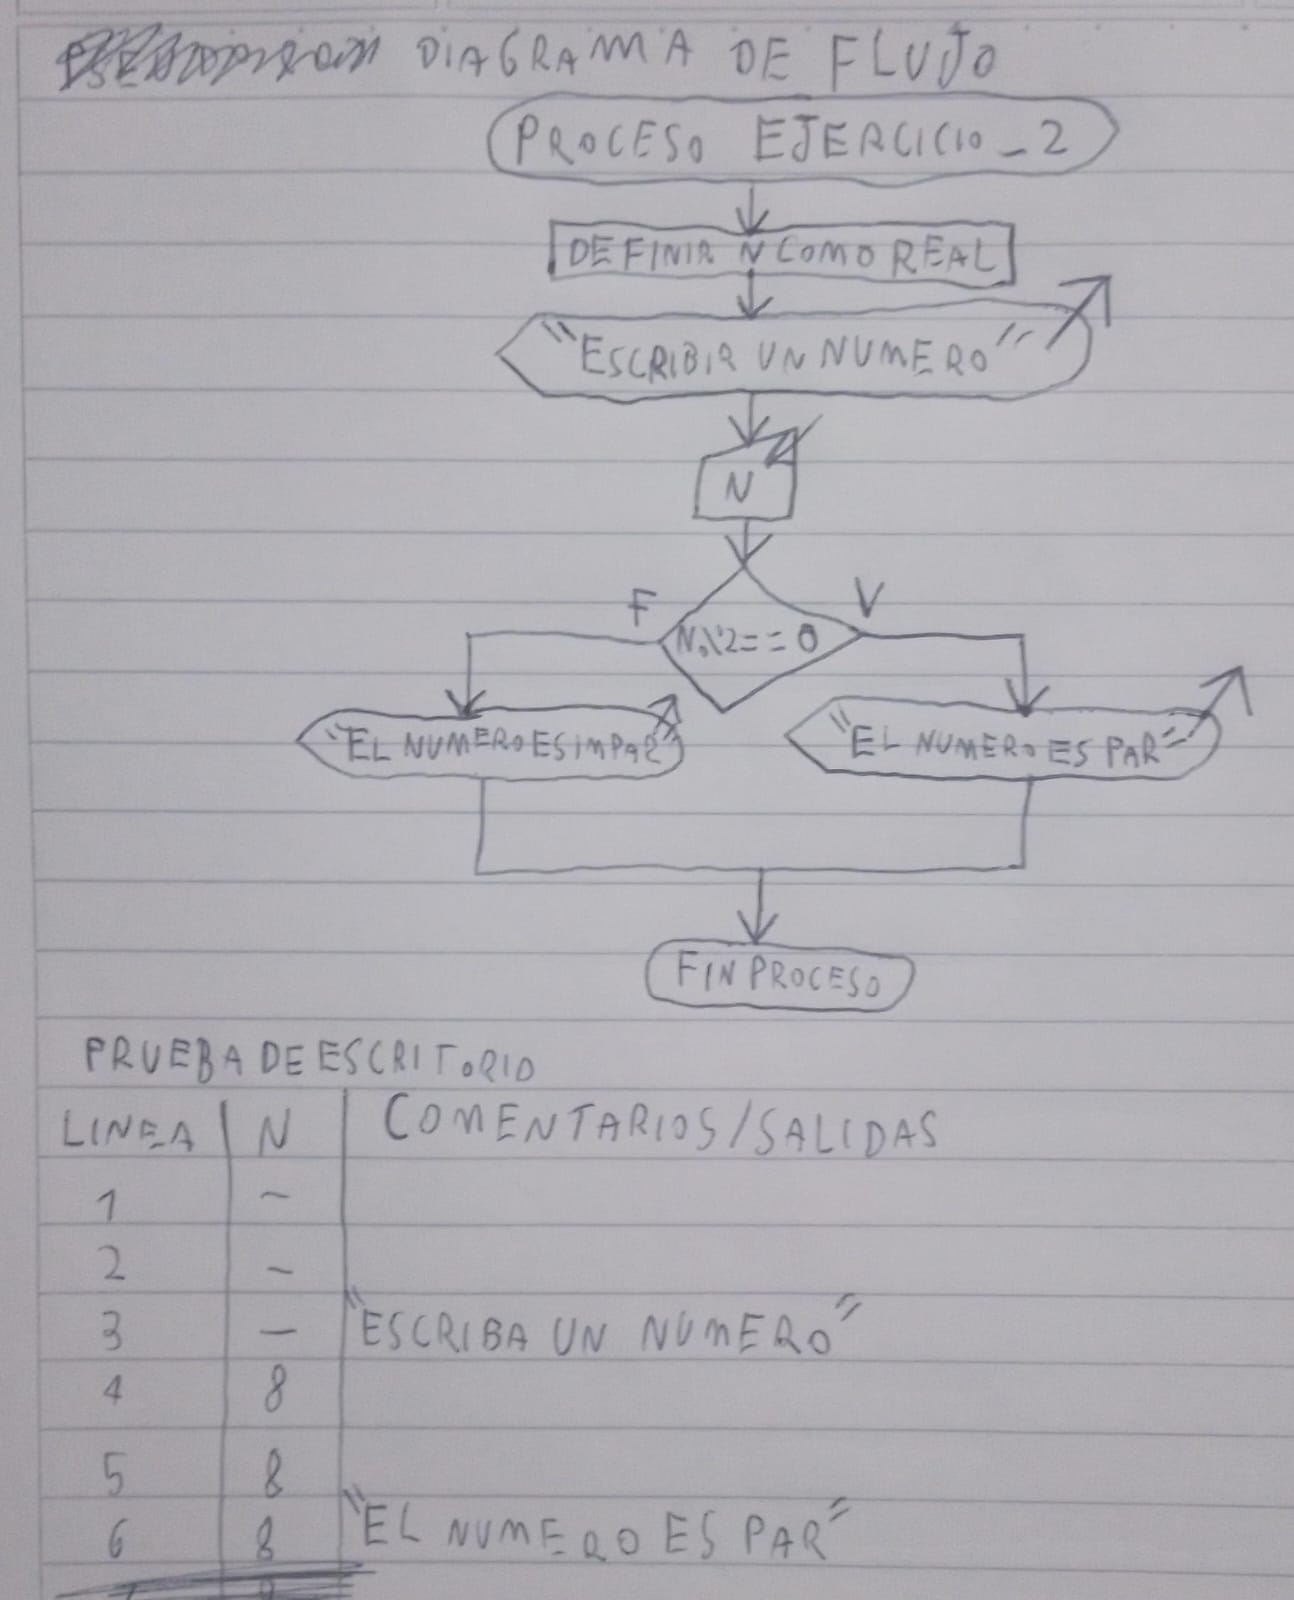 DIAGRAMA DE FLUJO
PROCESO EJERCICIO_2
DEFINIR N COMO REAL
"ESCRIBIR UN NUMERO"
N
F V
N%2==0
"EL NUMERO ES IMPAR" "EL NUMERO ES PAR"
FIN PROCESO
PRUEBA DE ESCRITORIO
LINEA N COMENTARIOS/SALIDAS
1 -
2 -
3 - "ESCRIBA UN NUMERO"
4 8
5 8
6 8 "EL NUMERO ES PAR"